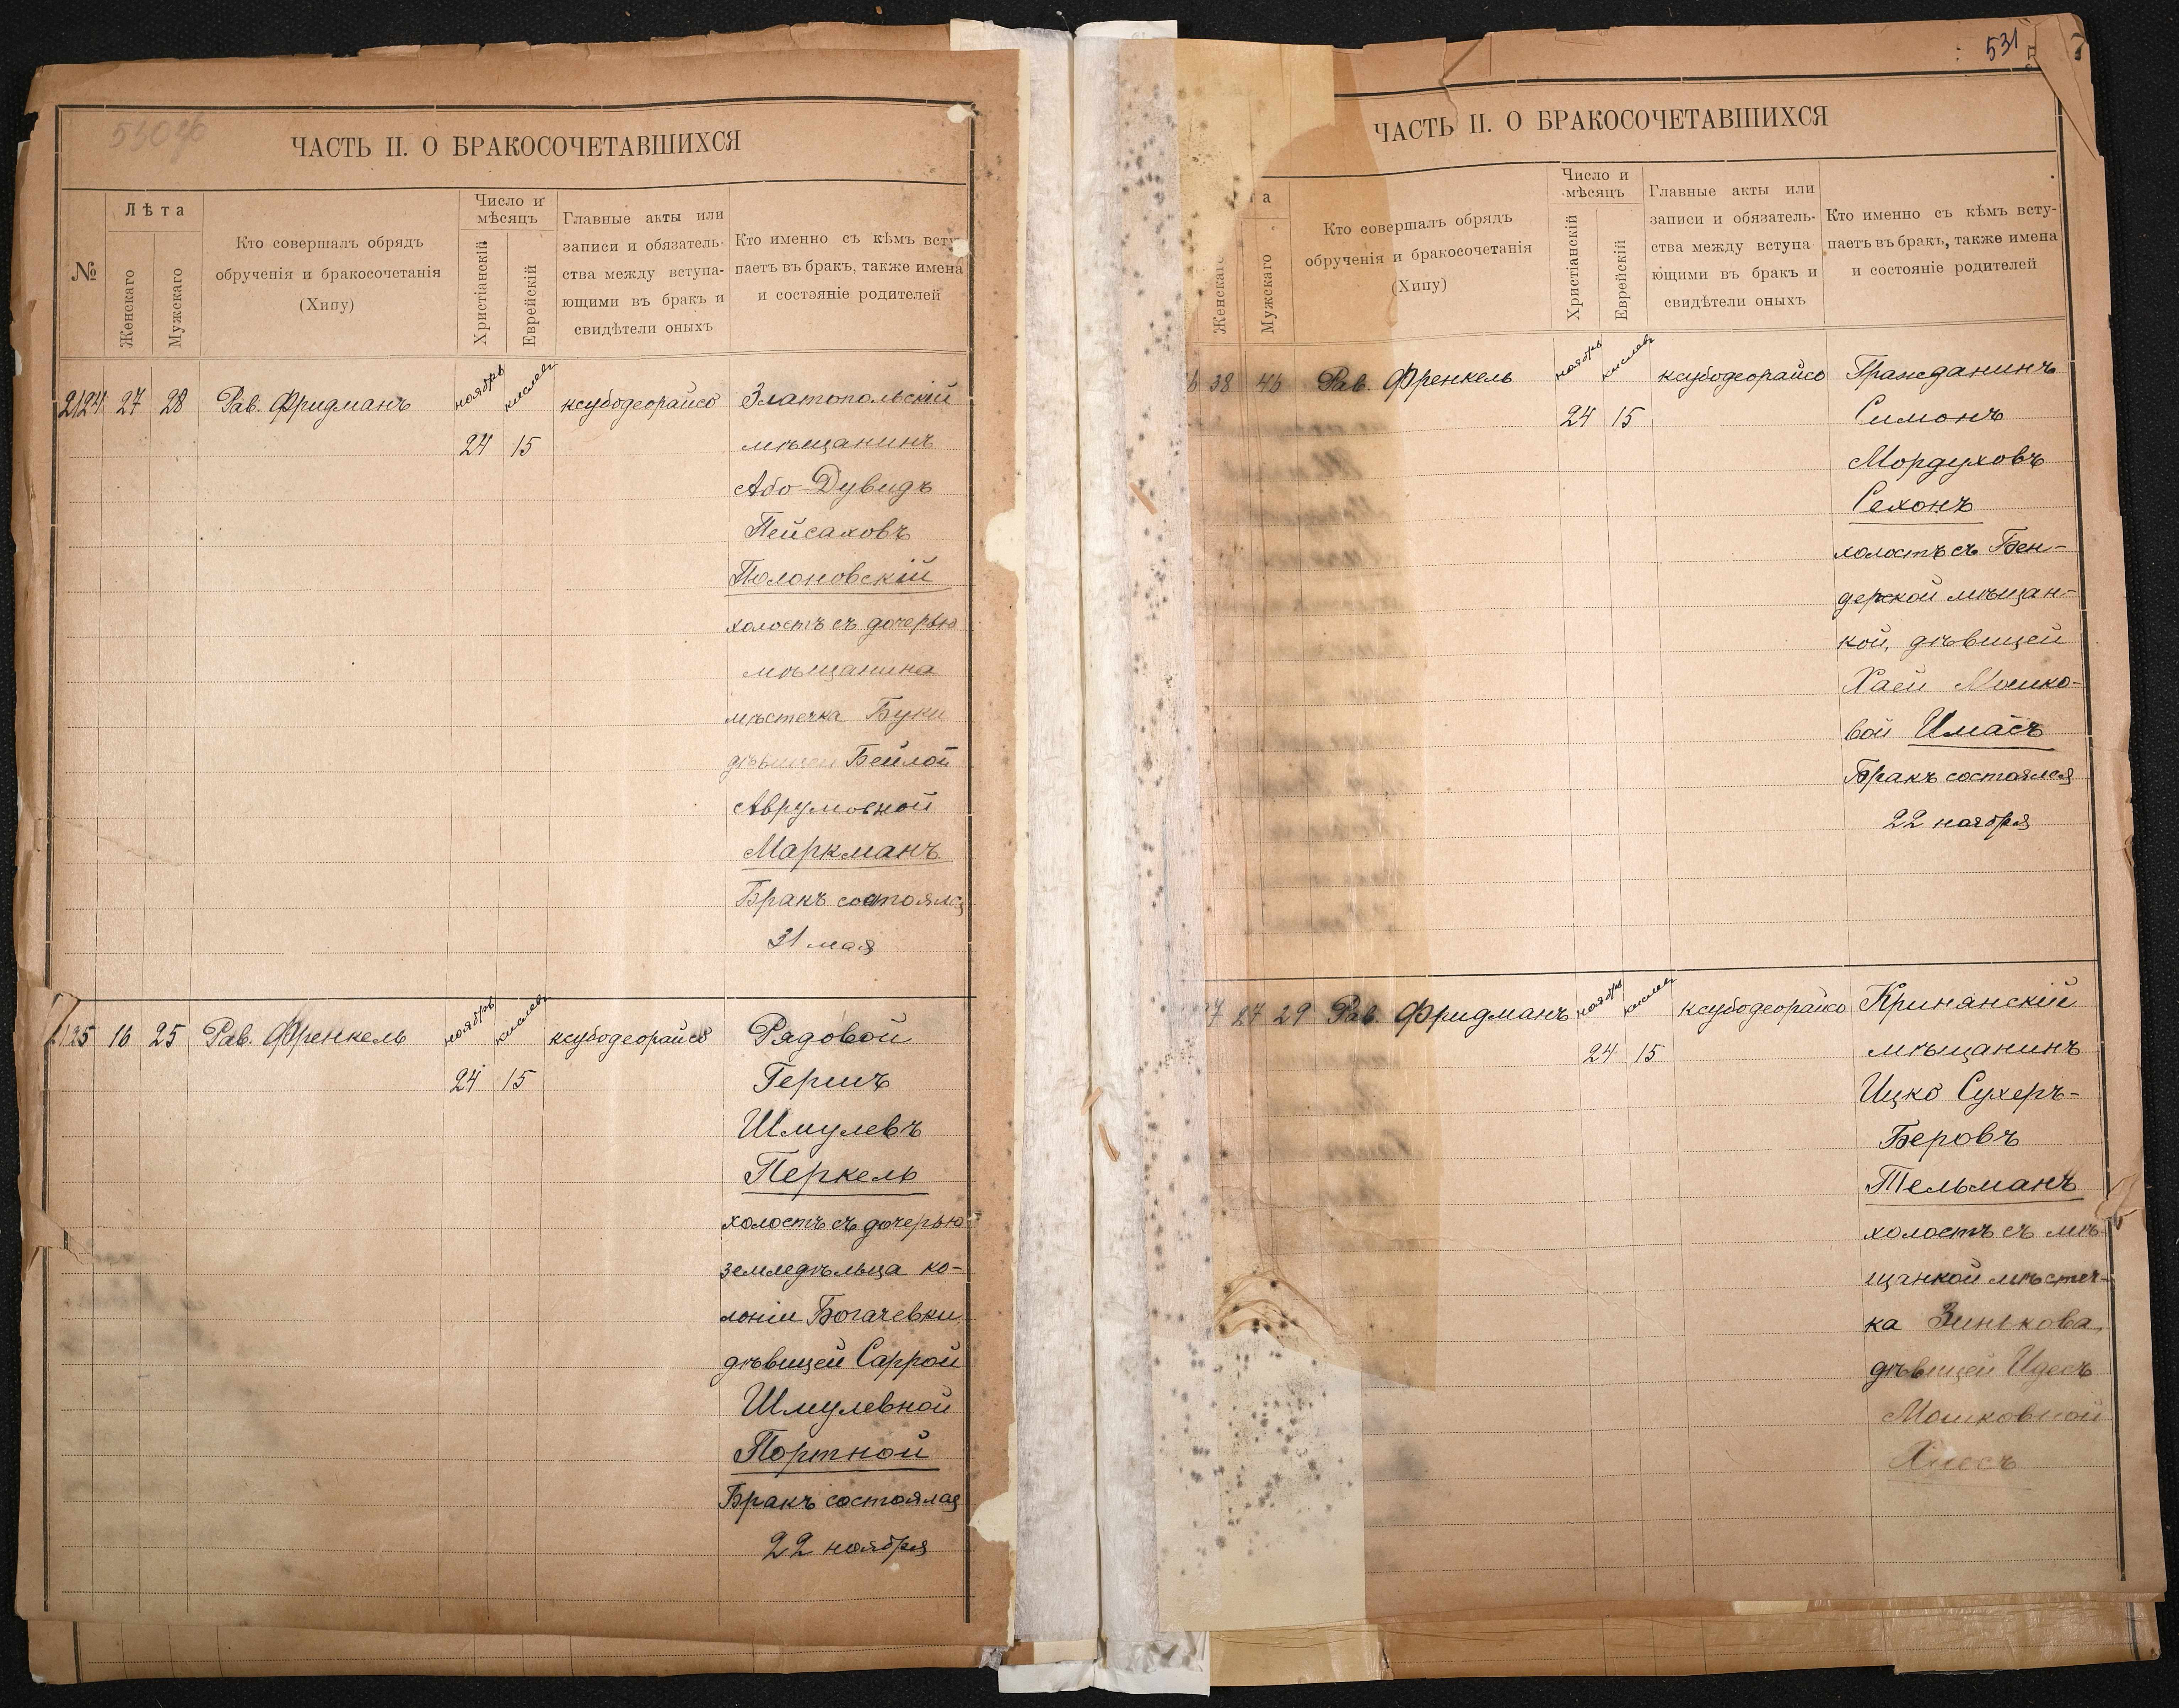 530об
ЧАСТЬ II. О БРАКОСОЧЕТАВШИХСЯ
№
Лѣта
Женскаго
Мужскаго
Кто совершалъ обрядъ
обрученія и бракосочетанія
(Хипу)
Число и
мѣсяцъ
Христіанскій
Еврейскій
Главные акты или
записи и обязатель-
ства между вступа-
ющими въ бракъ и
свидѣтели оныхъ
Кто именно съ кѣмъ всту-
паетъ въ бракъ, также имена
и состояніе родителей
2124 27 28 Рав. Фридманъ ноябрь кислевъ ксубодеорайсо Златопольскій
24 15 мѣщанинъ
Або-Дувидъ
Пейсаховъ
Полоновскій
холостъ съ дочерью
мѣщанина
мѣстечка Буки
дѣвицей Бейлой
Аврумовной
Маркманъ
Бракъ состоялся
31 мая
2125 16 25 Рав. Френкель ноябрь кислевъ ксубодеорайсо Рядовой
24 15 Гершъ
Шмулевъ
Перкель
холостъ съ дочерью
земледѣльца ко-
лоніи Богачевки
дѣвицей Саррой
Шмулевной
Портной
Бракъ состоялся
22 ноября
531
7
ЧАСТЬ II. О БРАКОСОЧЕТАВШИХСЯ
та
Женскаго
Мужскаго
Кто совершалъ обрядъ
обрученія и бракосочетанія
(Хипу)
Число и
мѣсяцъ
Христіанскій
Еврейскій
Главные акты или
записи и обязатель-
ства между вступа
ющими въ бракъ и
свидѣтели оныхъ
Кто именно съ кѣмъ всту-
паетъ въ бракъ, также имена
и состояніе родителей
6 38 43 Рав. Френкель ноябрь кислевъ ксубодеорайсо Гражданинъ
24 15 Симонъ
Мордуховъ
Сехонъ
холостъ съ Бен-
дерской мѣщан-
кой, дѣвицей
Хаей Мошко-
вой Имасъ
Бракъ состоялся
22 ноября
7 27 29 Рав. Фридманъ ноябрь кислевъ ксубодеорайсо Кринянскій
24 15 мѣщанинъ
Ицко Сухеръ-
Беровъ
Тельманъ
холостъ съ мѣ-
щанкой мѣстеч-
ка Зинькова,
дѣвицей Идесъ
Мошковной